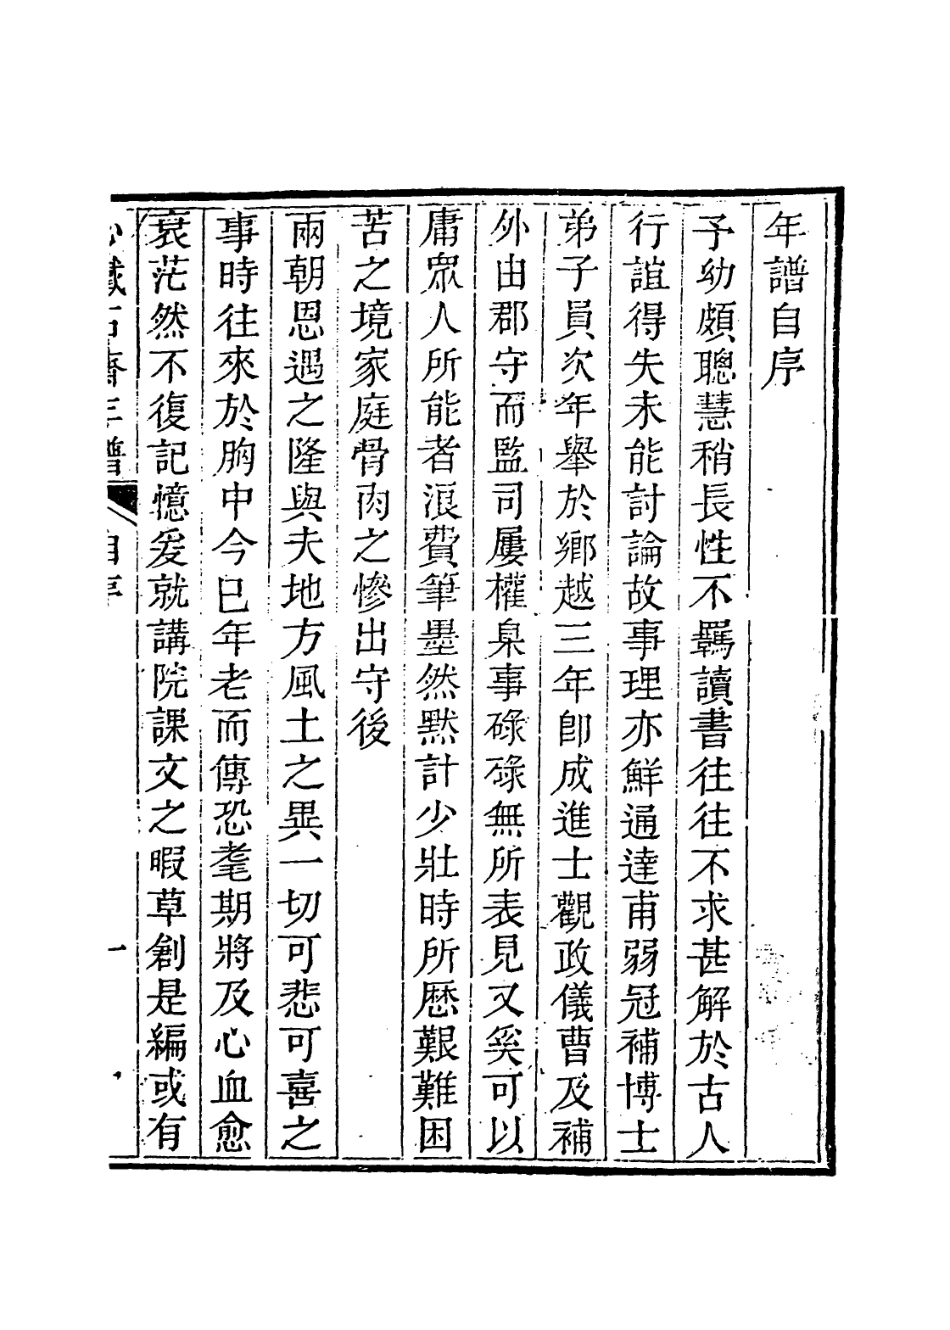 年譜自序
予幼頗聰慧稍長性不羈讀書往往不求甚解於古人
行誼得失未能討論故事理亦鮮通達甫弱冠補博士
弟子員次年舉於鄉越三年卽成進士觀政儀曹及補
外由郡守而監司屢權臬事碌碌無所表見又奚可以
庸眾人所能者浪費筆墨然默計少壯時所歷艱難困
苦之境家庭骨肉之慘出守後
兩朝恩遇之隆與夫地方風土之異一切可悲可喜之
事時往來於胸中今已年老而傳恐耄期將及心血愈
衰茫然不復記憶爰就講院課文之暇草創是編或有
石齋年譜 自序 一